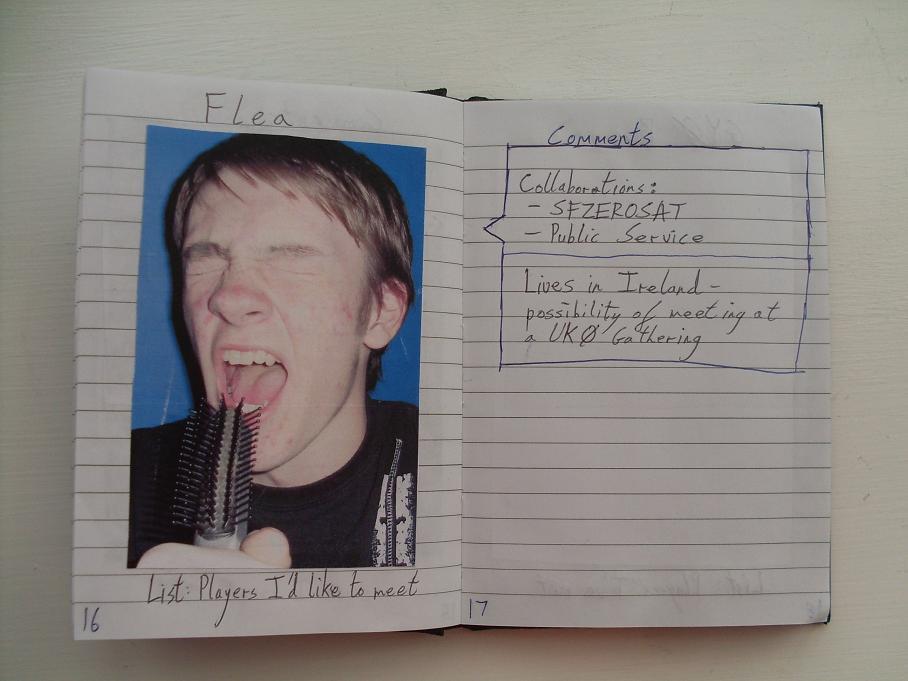 Flea
List: Players I'd like to meet
16
Comments
Collaborations:
- SFZEROSAT
- Public Service
Lives in Ireland -
possibility of meeting at
a UKØ Gathering
17